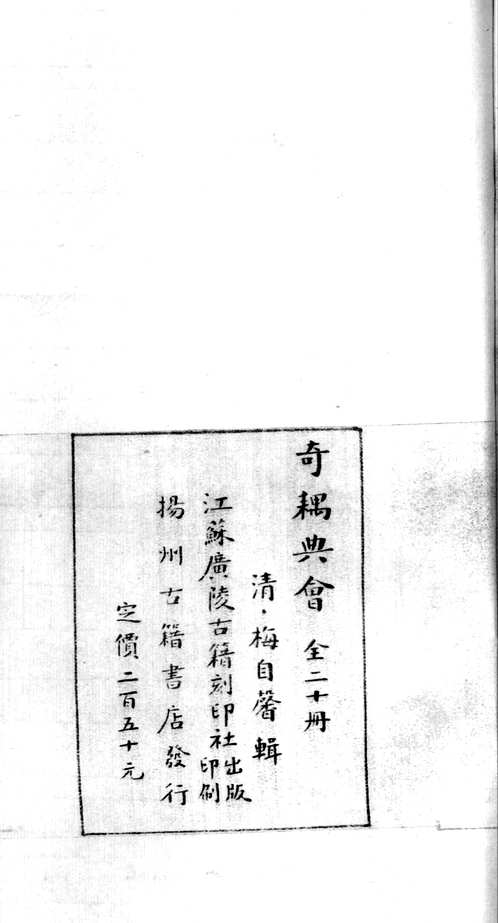 奇耦典會 全二十冊
清·梅自馨輯
江蘇廣陵古籍刻印社出版印刷
揚州古籍書店發行
定價二百五十元